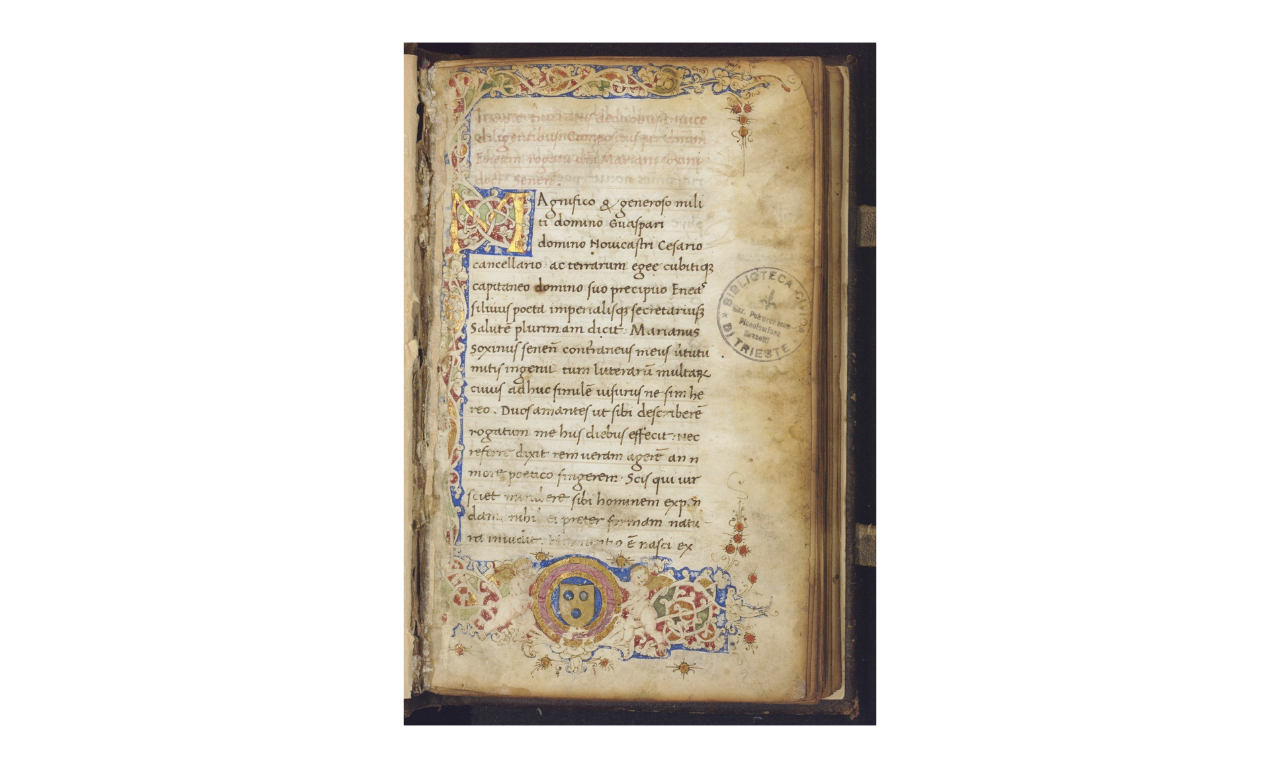 diligentibus
Eneam rogatu Mariani
senen
MAgnifico & generoso mili
ti domino Guaspari
domino Nouicastri Cesario
cancellario ac terrarum egec cubitiqꝫ
capitaneo domino suo precipuo Eneaˢ
siluius poeta imperialisqꝫ secretariusqꝫ
Salutē plurimam dicit. Marianus
soxinus senen̄ conterraneus meus
mitis ingenii tum litterarū multaꝝ
cuius adhuc similē uisurus ne sim he
reo. Duos amantes ut sibi describerē
rogatum me his diebus effecit nec
referre dixit rem ueram agerē an
more poetico fingerem. Scis qui uir
sciet sibi hominem
nihil ei preter formam natu
ra inuidit. ē nasci ex
BIBLIOTECA CIVICA
DI TRIESTE
Piccolominea